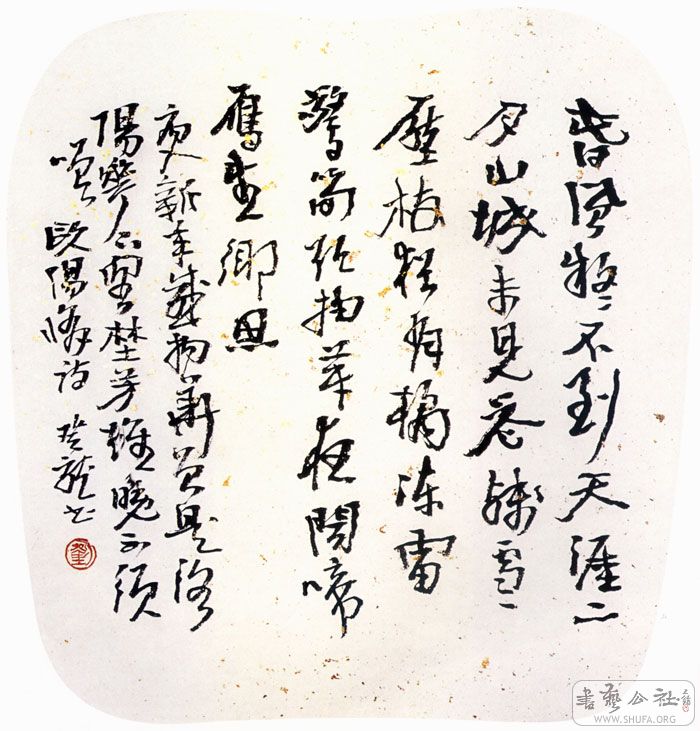 春風疑不到天涯二
月山城未見花殘雪
壓枝猶有橘凍雷
驚筍欲抽芽夜聞啼
雁生鄉思
病入新年感物華曾是洛
陽花下客野芳雖晚不須
嗟 歐陽脩詩 龍書
書藝公社
WWW.SHUFA.ORG